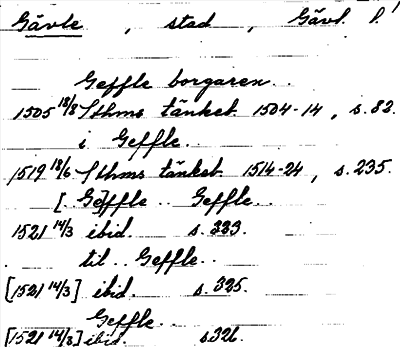 Gävle, stad, Gävl. l.
Geffle borgaren..
1505 18/8 Sthms tänkeb. 1504-14, s. 82.
i Geffle..
1519 18/6 Sthms tänkeb. 1514-24, s. 235.
[Ge]ffle.. Geffle..
1521 14/3 ibid. s. 323.
til.. Geffle..
[1521 14/3] ibid. s. 325.
Geffle..
[1521 14/3] ibid. s. 326.